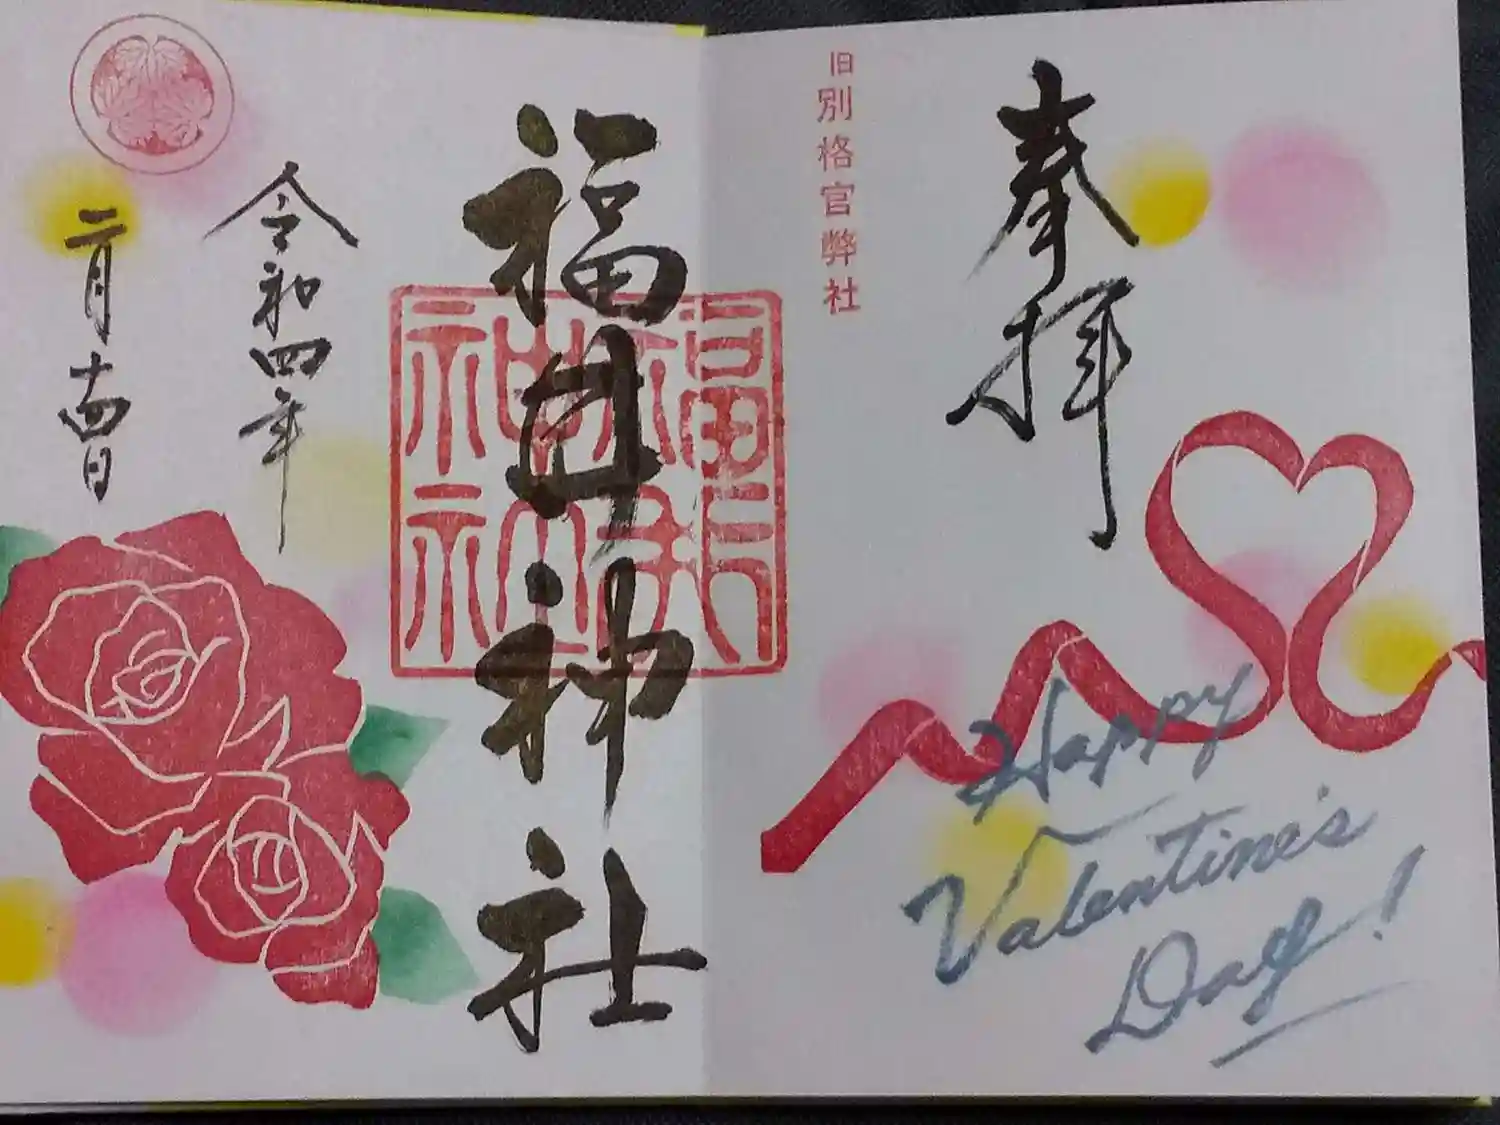 奉拝
旧別格官弊社
福井神社
福井
神社
神社
令和四年
二月十四日
Happy
Valentine's
Day!